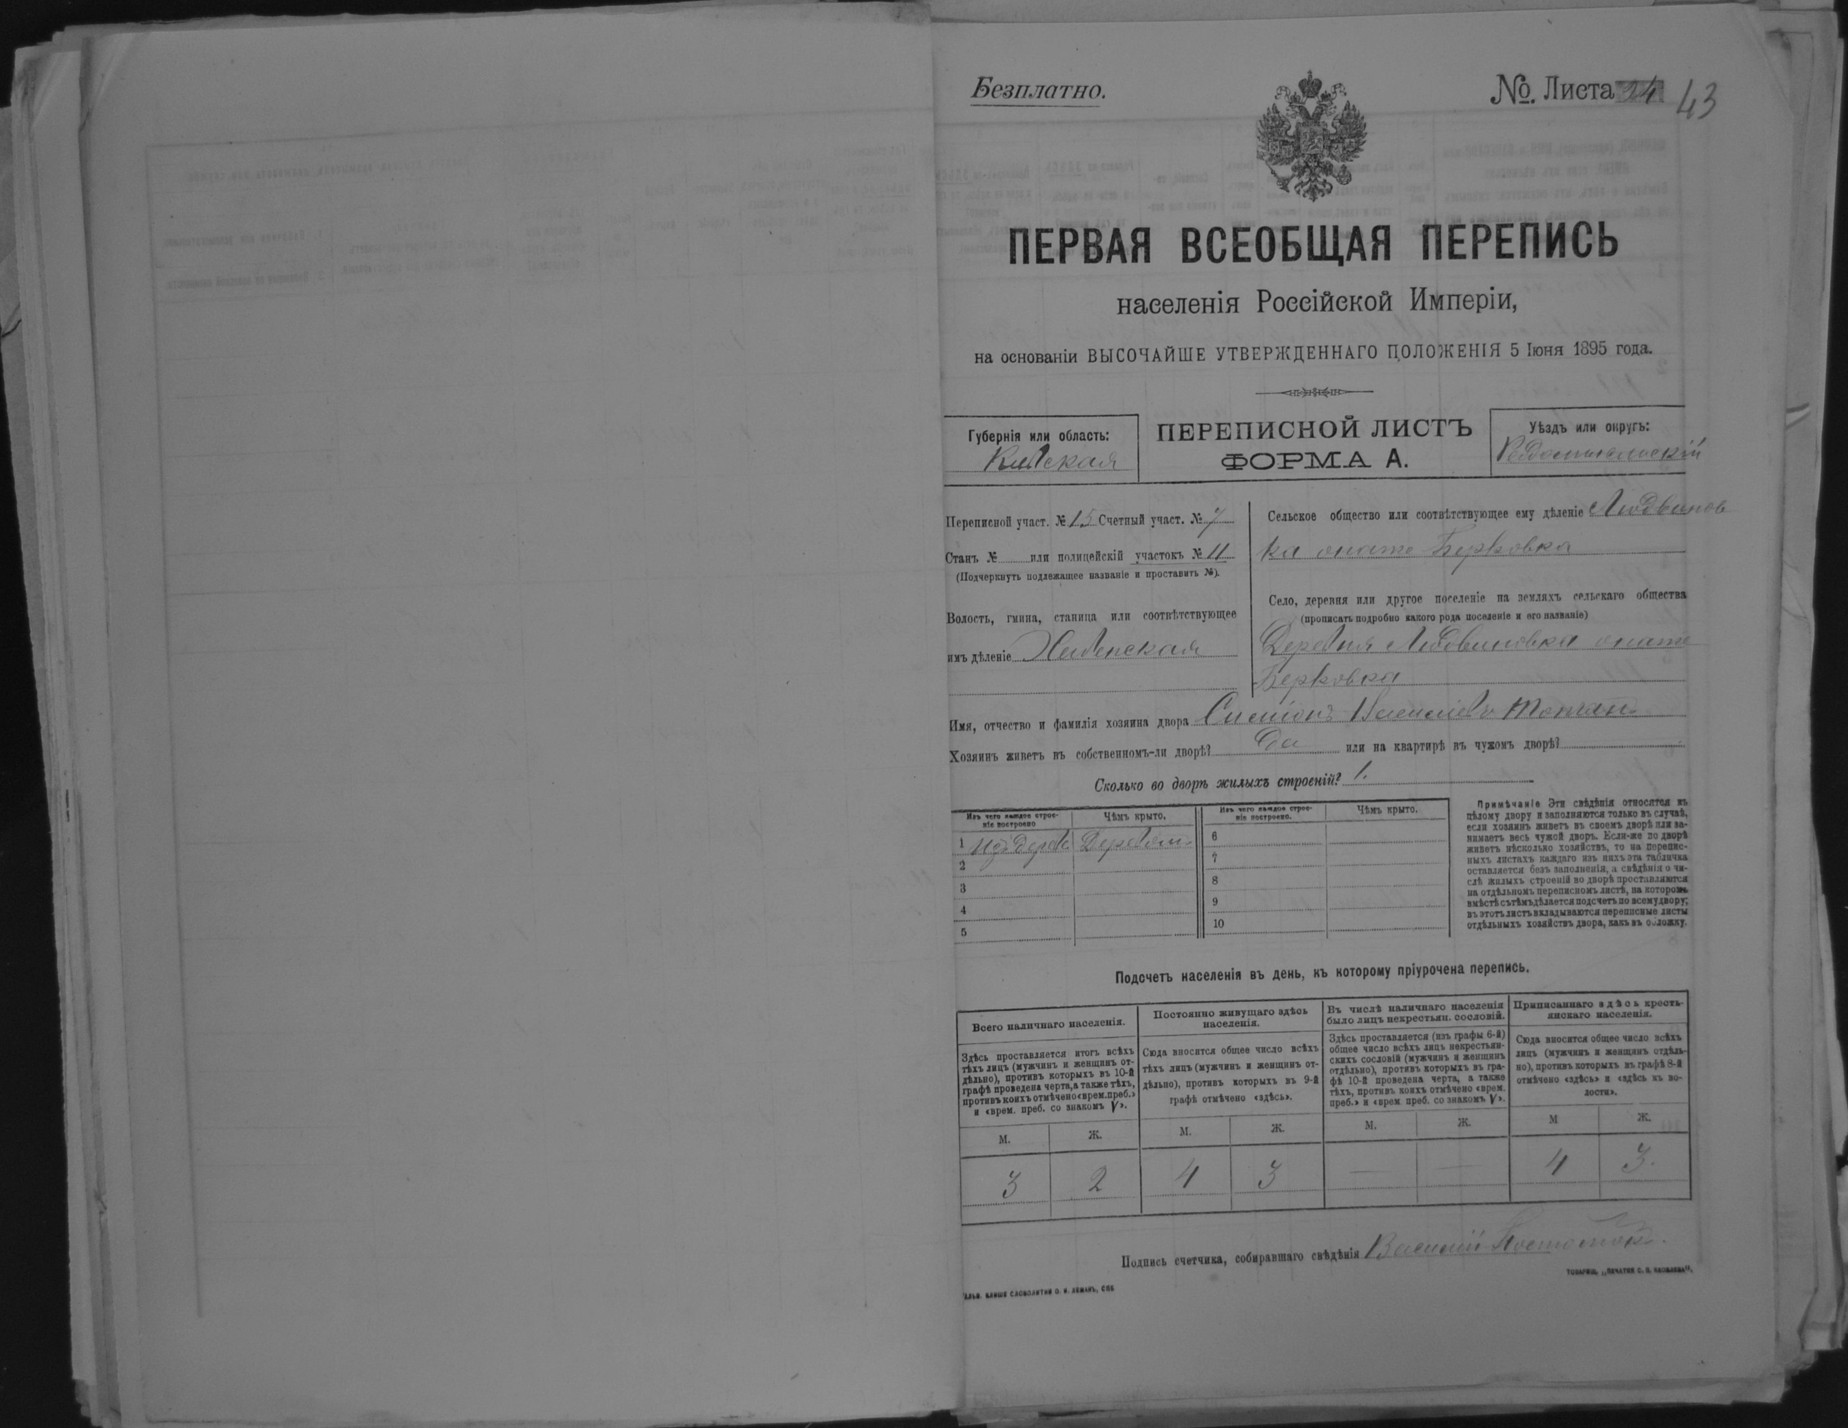 Безплатно.
№. Листа 24 43
ПЕРВАЯ ВСЕОБЩАЯ ПЕРЕПИСЬ
населенія Россійской Имперіи,
на основаніи ВЫСОЧАЙШЕ УТВЕРЖДЕННАГО ПОЛОЖЕНІЯ 5 Іюня 1895 года.
Губернія или область:
Кіевская
ПЕРЕПИСНОЙ ЛИСТЪ
ФОРМА А.
Уѣздъ или округъ:
Радомысльскій
Переписной участ. № 15 Счетный участ. № 7
Станъ № или полицейскій участокъ № 11
(Подчеркнуть подлежащее названіе и проставить №).
Волость, гмина, станица или соотвѣтствующее
имъ дѣленіе Хабенская
Сельское общество или соотвѣтствующее ему дѣленіе Людвинов
ка онаже Берковка
Село, деревня или другое поселеніе на земляхъ сельскаго общества
(прописать подробно какого рода поселеніе и его названіе)
Деревня Людвиновка онаже
Берковка
Имя, отчество и фамилія хозяина двора Симіонъ Васильевъ
Хозяинъ живетъ въ собственномъ-ли дворѣ? Да или на квартирѣ въ чужомъ дворѣ?
Сколько во дворѣ жилыхъ строеній? 1.
Изъ чего каждое строе-
ніе построено
Чѣмъ крыто.
Изъ чего каждое строе-
ніе построено.
Чѣмъ крыто.
1 Изъ дерева Деревом 6
2 7
3 8
4 9
5 10
Примѣчаніе Эти свѣдѣнія относятся къ
цѣлому двору и заполняются только въ случаѣ,
если хозяинъ живетъ въ своемъ дворѣ или за-
нимаетъ весь чужой дворъ. Если-же во дворѣ
живетъ нѣсколько хозяйствъ, то на перепис-
ныхъ листахъ каждаго изъ нихъ эта табличка
оставляется безъ заполненія, а свѣдѣнія о чи-
слѣ жилыхъ строеній во дворѣ проставляются
на отдѣльномъ переписномъ листѣ, на которомъ
вмѣстѣ съ тѣмъ дѣлается подсчетъ по всему двору;
въ этотъ листъ вкладываются переписные листы
отдѣльныхъ хозяйствъ двора, какъ въ обложку.
Подсчетъ населенія въ день, къ которому пріурочена перепись.
Всего наличнаго населенія.
Здѣсь проставляется итогъ всѣхъ
тѣхъ лицъ (мужчинъ и женщинъ от-
дѣльно), противъ которыхъ въ 10-й
графѣ проведена черта, а также тѣхъ,
противъ коихъ отмѣчено «врем. преб.»
и «врем. преб. со знакомъ V».
Постоянно живущаго здѣсь
населенія.
Сюда вносится общее число всѣхъ
тѣхъ лицъ (мужчинъ и женщинъ от-
дѣльно), противъ которыхъ въ 9-й
графѣ отмѣчено «здѣсь».
Въ числѣ наличнаго населенія
было лицъ некрестьян. сословій.
Здѣсь проставляется (изъ графы 6-й)
общее число всѣхъ лицъ некрестьян-
скихъ сословій (мужчинъ и женщинъ
отдѣльно), противъ которыхъ въ гра-
фѣ 10-й проведена черта, а также
тѣхъ, противъ коихъ отмѣчено «врем.
преб.» и «врем преб. со знакомъ V».
Приписаннаго здѣсь кресть-
янскаго населенія.
Сюда вносится общее число всѣхъ
лицъ (мужчинъ и женщинъ отдѣль-
но), противъ которыхъ въ графѣ 8-й
отмѣчено «здѣсь» и «здѣсь въ во-
лости».
М. Ж. М. Ж. М. Ж. М Ж.
3 2 4 3 — — 4 3.
Подпись счетчика, собиравшаго свѣдѣнія Василій